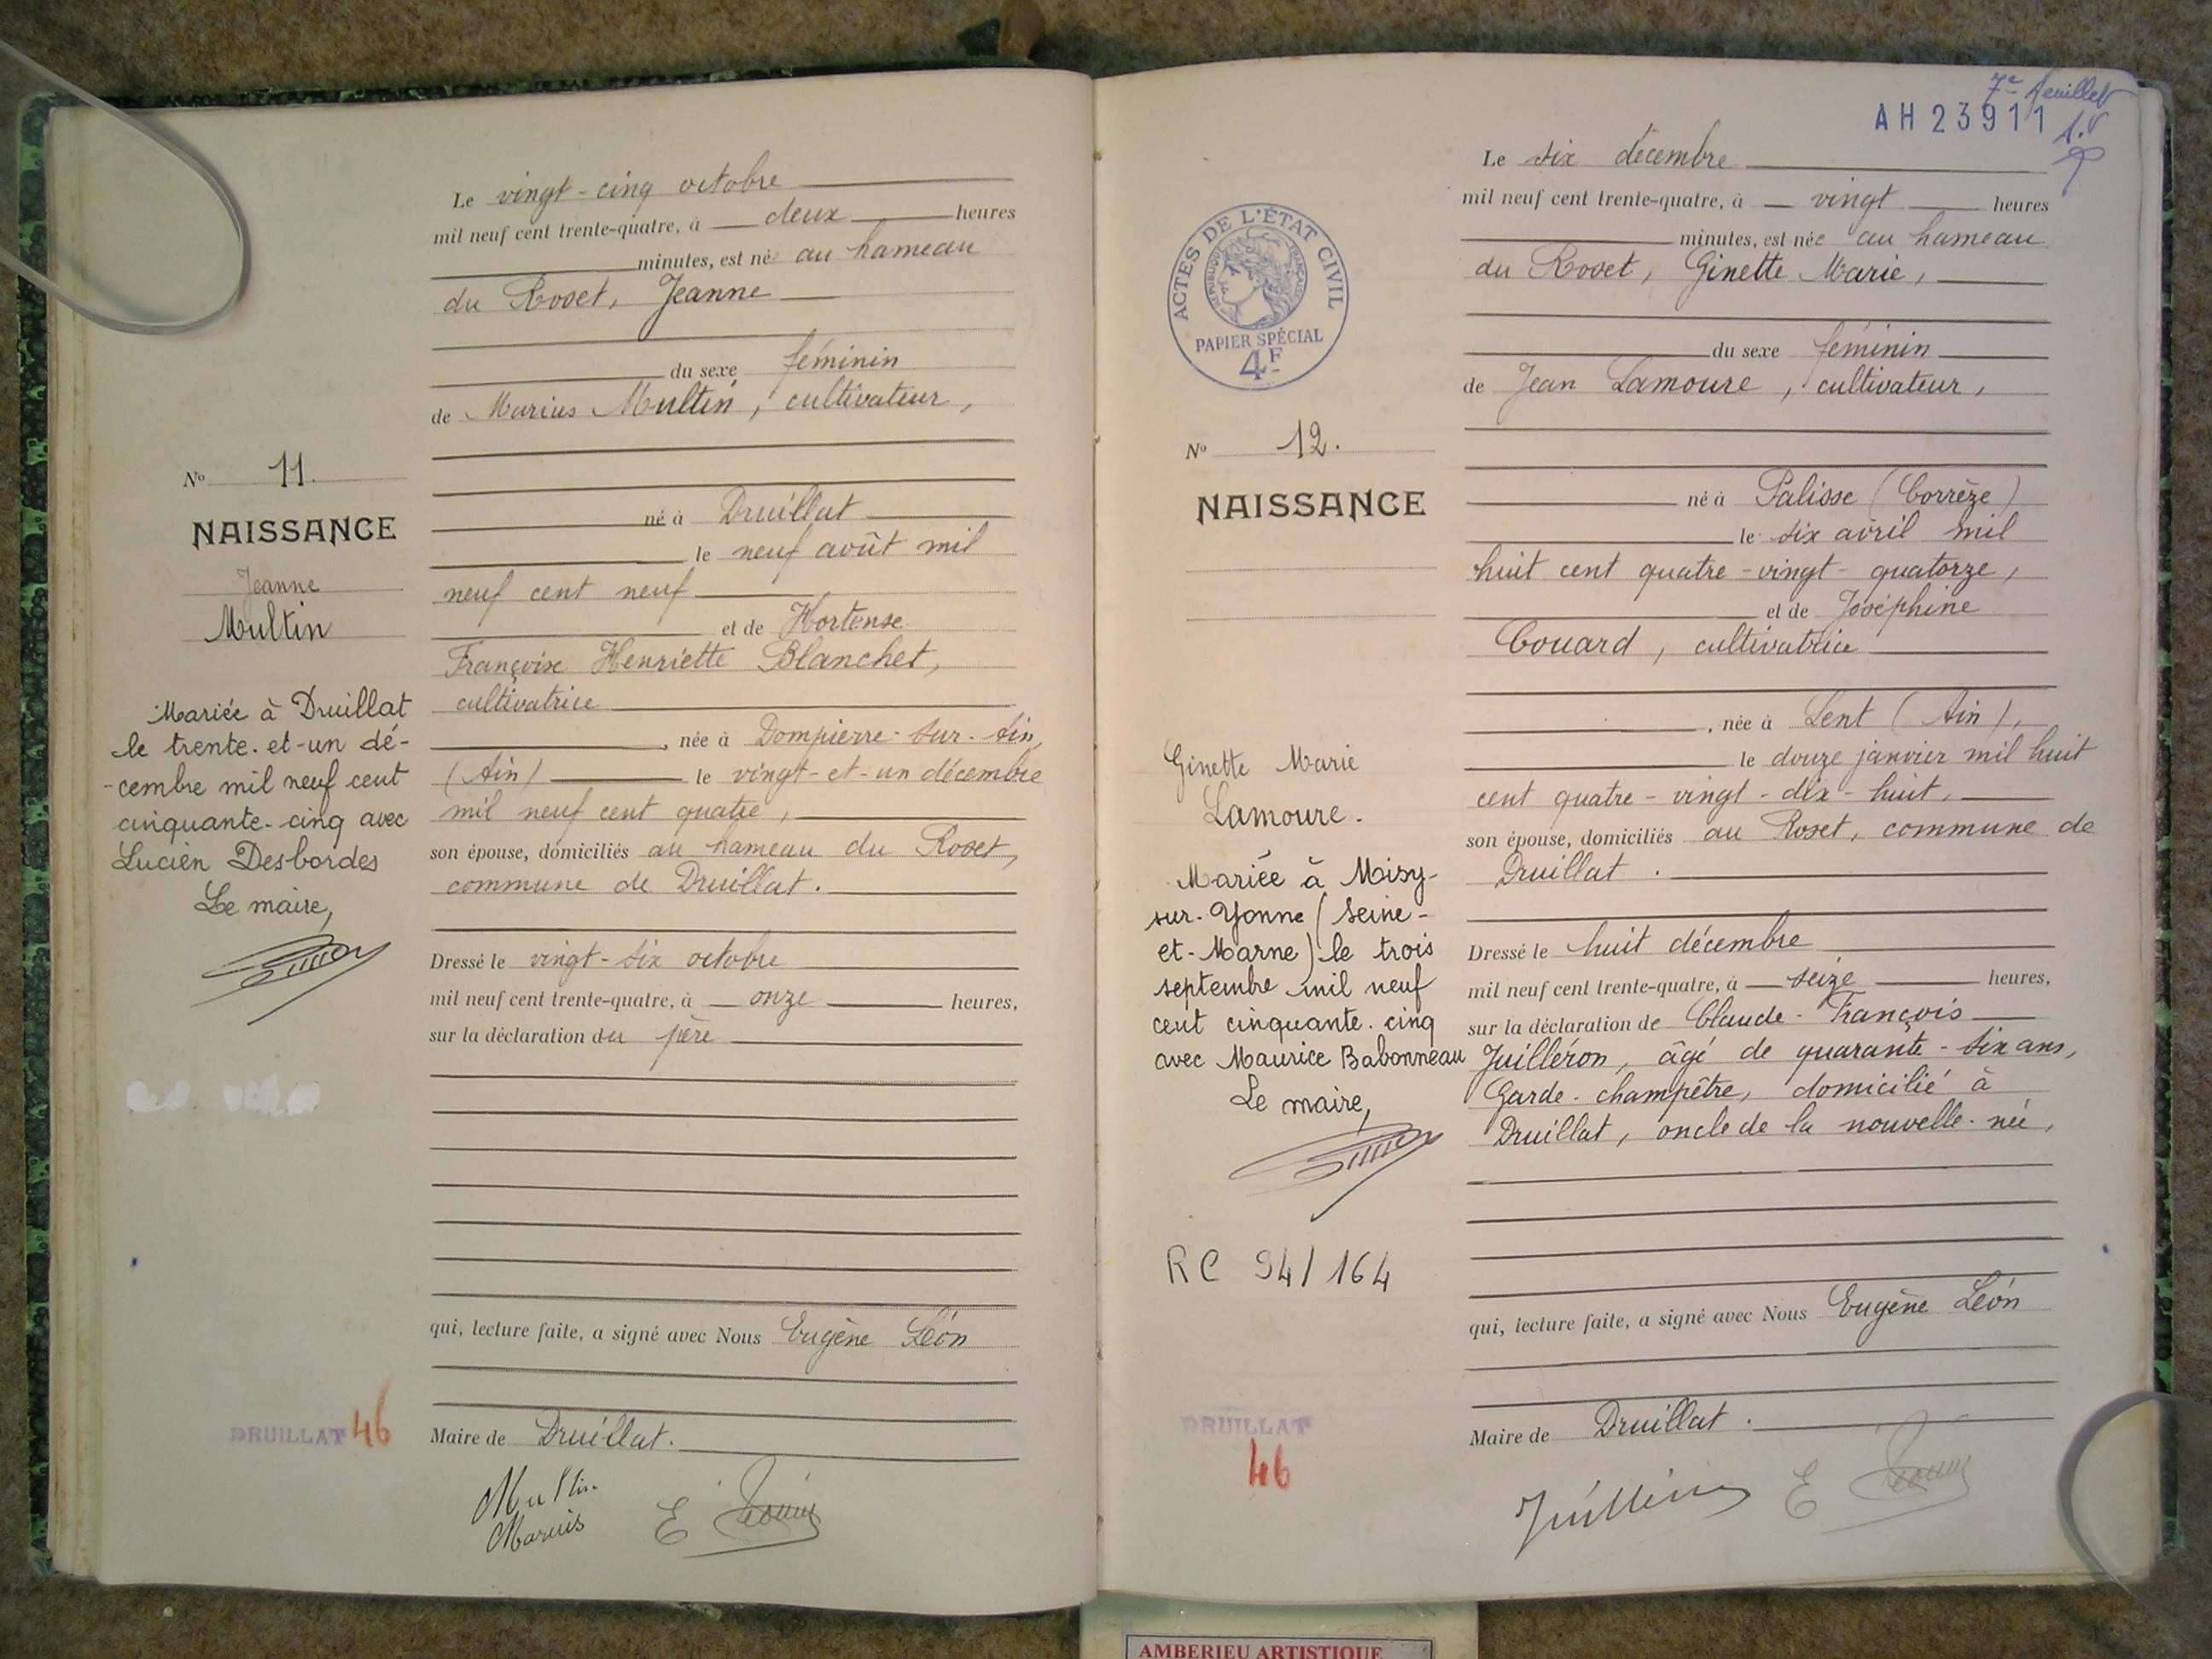 Le vingt-cinq octobre
mil neuf cent trente-quatre, à deux heures
minutes, est née au hameau
du Roset, Jeanne
du sexe féminin
de Marius Multin, cultivateur,
né à Druillat
le neuf août mil
neuf cent neuf
et de Hortense
Françoise Henriette Blanchet,
cultivatrice
, née à Dompierre-sur-Ain,
(Ain) le vingt-et-un décembre
mil neuf cent quatre,
son épouse, domiciliés au hameau du Roset,
commune de Druillat.
Dressé le vingt-six octobre
mil neuf cent trente-quatre, à onze heures,
sur la déclaration du père
qui, lecture faite, a signé avec Nous Eugène Léon
Maire de Druillat.
Multin
Marius
E
No 11.
NAISSANCE
Jeanne
Multin
Mariée à Druillat
le trente-et-un dé-
-cembre mil neuf cent
cinquante-cinq avec
Lucien Desbordes
Le maire,
DRUILLAT 46
7e feuillet
AH 23911
Le six décembre
mil neuf cent trente-quatre, à vingt heures
minutes, est née au hameau
du Roset, Ginette Marie,
du sexe féminin
de Jean Lamoure, cultivateur,
né à Palisse (Corrèze)
le six avril mil
huit cent quatre-vingt-quatorze,
et de Joséphine
Couard, cultivatrice
, née à Lent (Ain),
le douze janvier mil huit
cent quatre-vingt-dix-huit,
son épouse, domiciliés au Roset, commune de
Druillat.
Dressé le huit décembre
mil neuf cent trente-quatre, à seize heures,
sur la déclaration de Claude-François
Juilléron, âgé de quarante-six ans,
Garde-champêtre, domicilié à
Druillat, oncle de la nouvelle-née,
qui, lecture faite, a signé avec Nous Eugène Léon
Maire de Druillat.
E
ACTES DE L'ÉTAT CIVIL
RÉPUBLIQUE FRANÇAISE
PAPIER SPÉCIAL
4F
No 12.
NAISSANCE
Ginette Marie
Lamoure.
Mariée à Misy-
sur-Yonne (Seine-
et-Marne) le trois
septembre mil neuf
cent cinquante-cinq
avec Maurice Babonneau
Le maire,
RC 94/164
DRUILLAT
46
AMBERIEU ARTISTIQUE